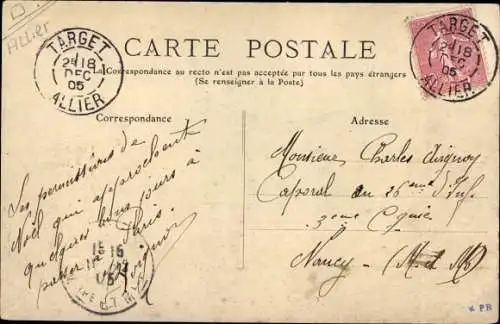 Allier
TARGET
18
DEC
05
ALLIER
CARTE POSTALE
TARGET
18
DEC
05
ALLIER
La Correspondance au recto n'est pas acceptée par tous les pays étrangers
(Se renseigner à la Poste)
Correspondance
Adresse
Les permissions de
Noël qui approchent
quelques bons jours à
passer à Paris.
Monsieur Charles
Caporal au 26ème d'Inf.
3ème Cgnie
Nancy (M. et M)
15
PR